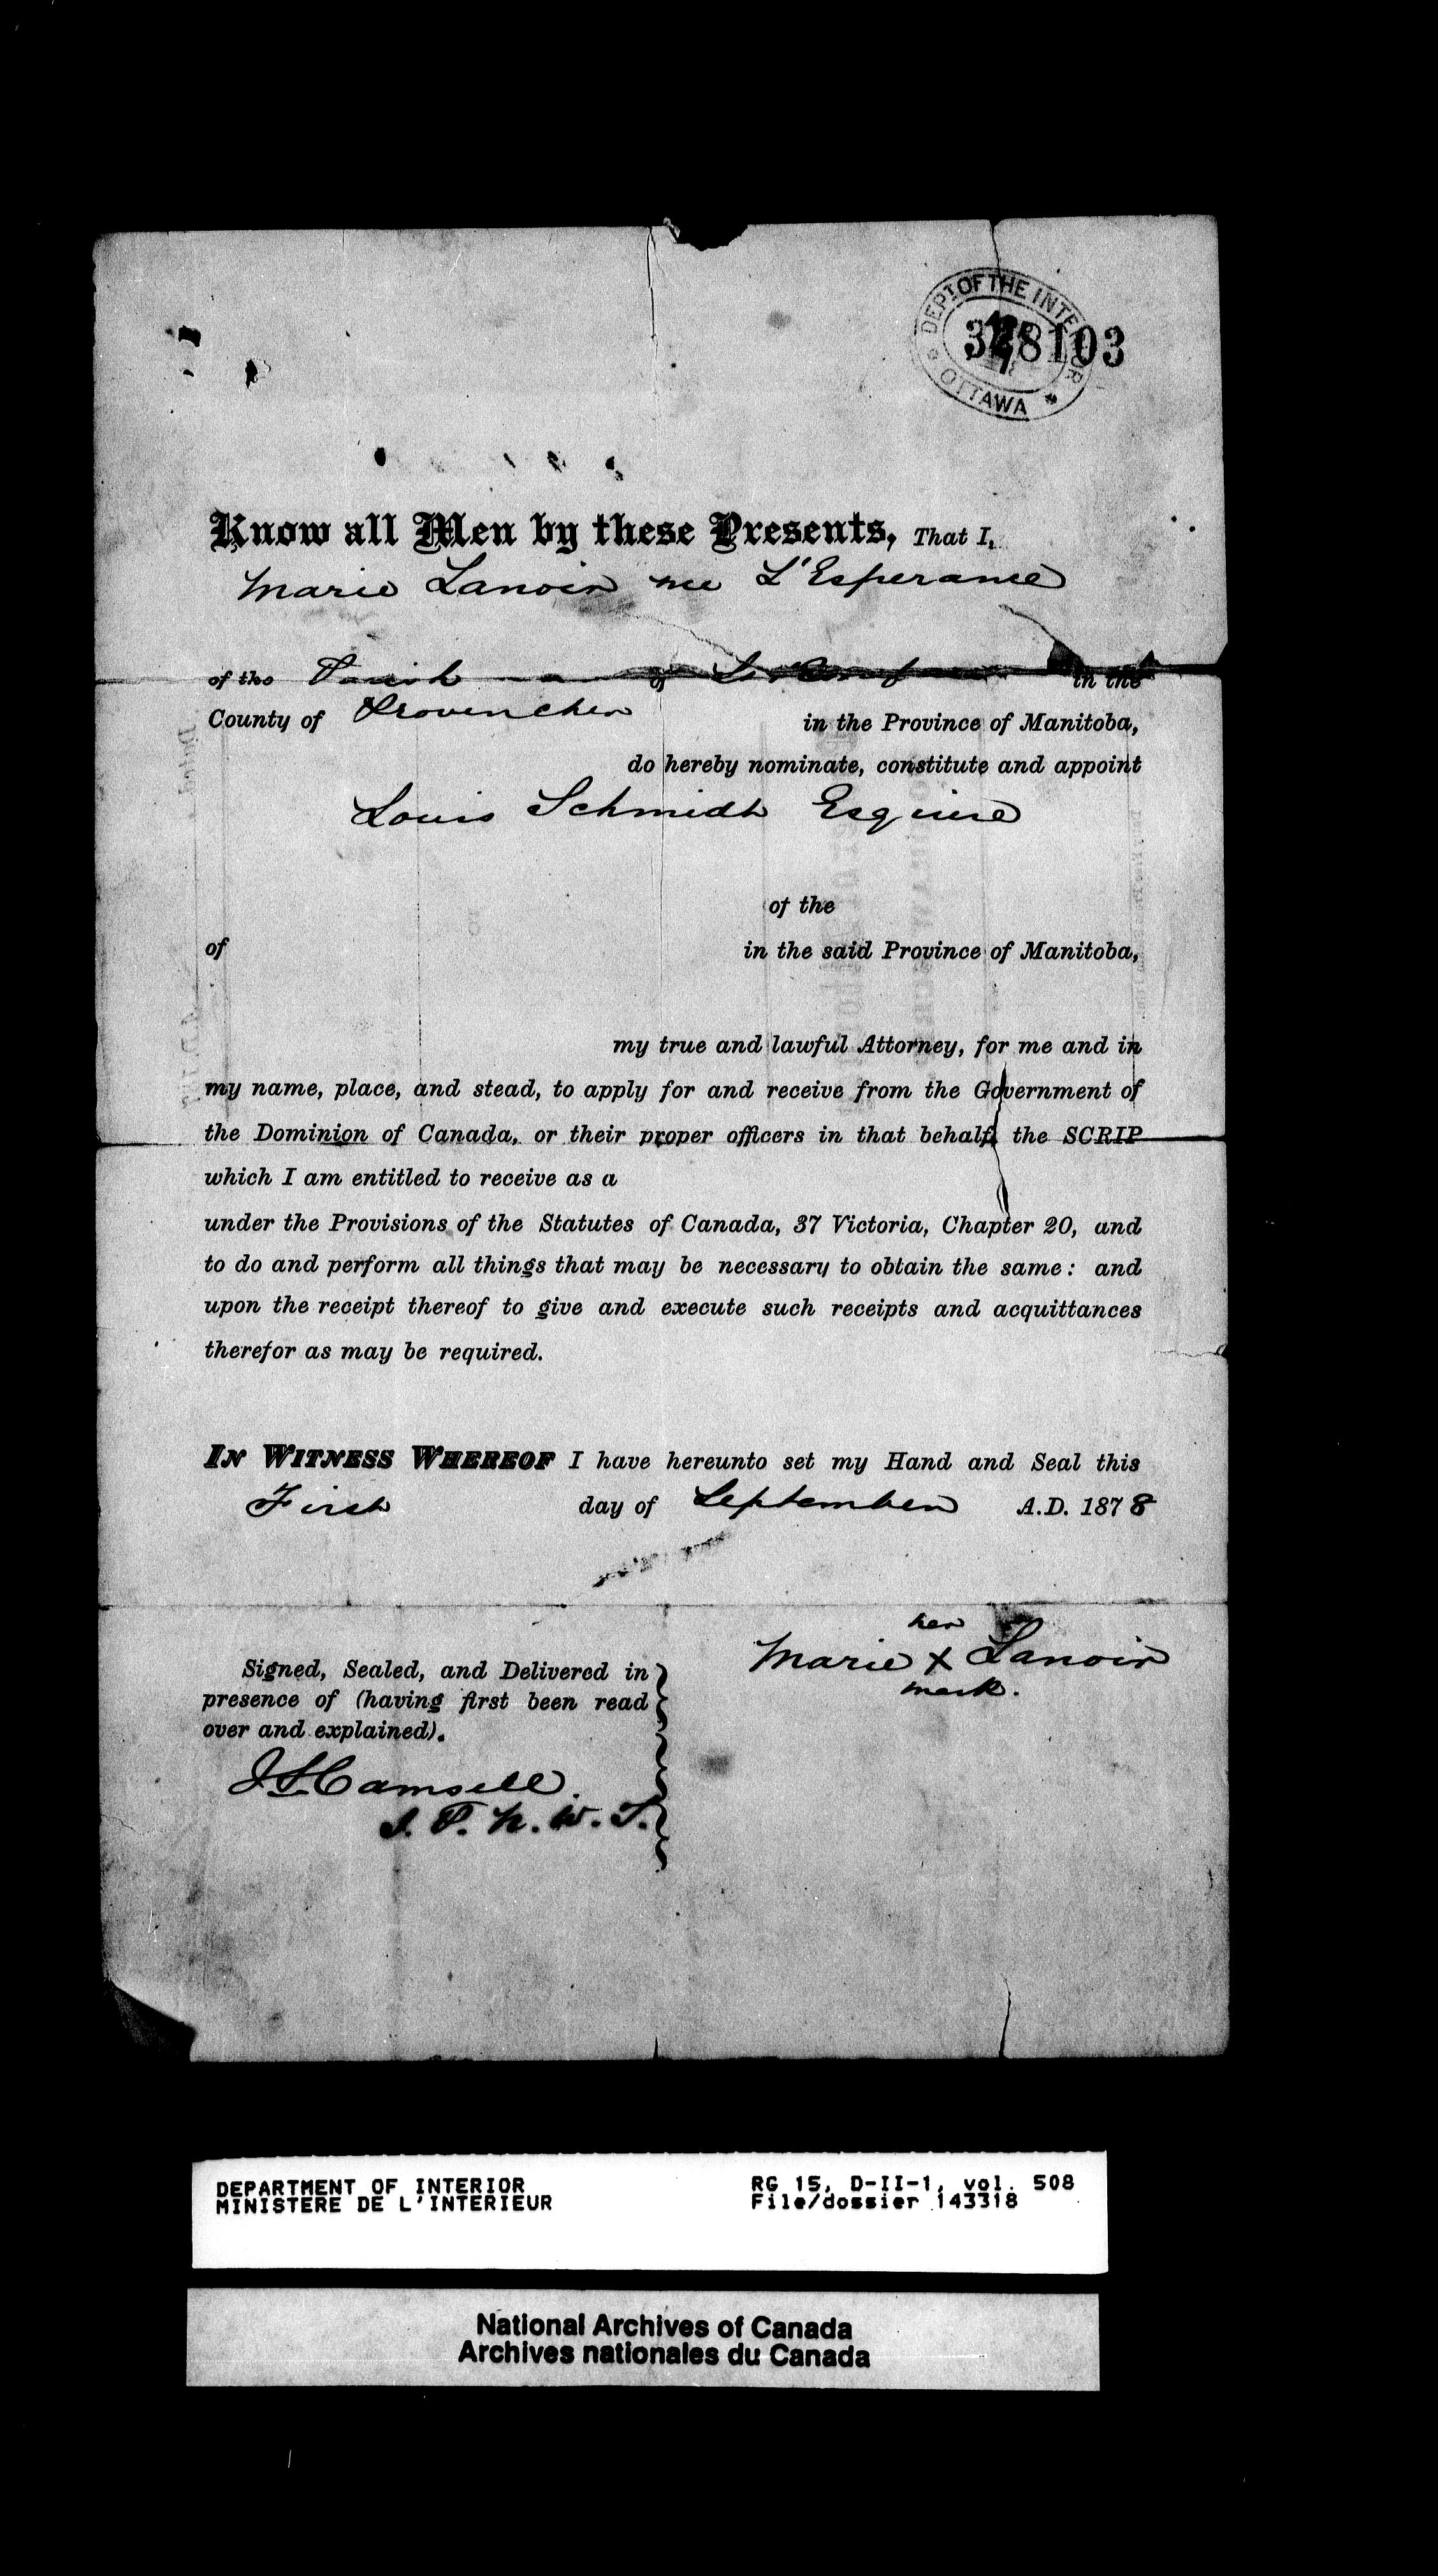 DEPT. OF THE INTERIOR
328103
OTTAWA
Know all Men by these Presents, That I,
Marie Lanoir nee L'Esperance
of the Parish of in the
County of Provencher in the Province of Manitoba,
do hereby nominate, constitute and appoint
Louis Schmidt Esquire
of the
of in the said Province of Manitoba,
my true and lawful Attorney, for me and in
my name, place, and stead, to apply for and receive from the Government of
the Dominion of Canada, or their proper officers in that behalf, the SCRIP
which I am entitled to receive as a
under the Provisions of the Statutes of Canada, 37 Victoria, Chapter 20, and
to do and perform all things that may be necessary to obtain the same: and
upon the receipt thereof to give and execute such receipts and acquittances
therefor as may be required.
IN WITNESS WHEREOF I have hereunto set my Hand and Seal this
First day of September A.D. 1878
her
Marie X Lanoir
mark.
Signed, Sealed, and Delivered in
presence of (having first been read
over and explained).
J S Camsell
J. P. N. W. T.
DEPARTMENT OF INTERIOR RG 15, D-II-1, vol. 508
MINISTERE DE L'INTERIEUR File/dossier 143318
National Archives of Canada
Archives nationales du Canada